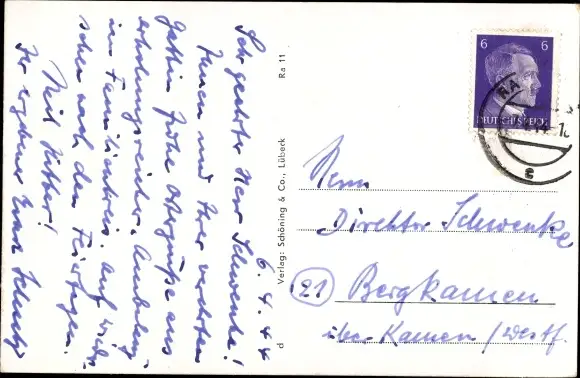 6.4.44
Sehr geehrter Herr Schwenke!
Ihnen und Ihrer verehrten
Gattin frohe Ostergrüße aus
erholungsreicher
im Familienkreis. Auf Wieder-
sehen nach den Feiertagen.
Heil Hitler!
Ihr ergebener
d Verlag: Schöning & Co., Lübeck Ra 11
6 6
DEUTSCHES REICH
RA
Herrn
Direktor Schwenke
(21) Bergkamen
über Kamen / Westf.